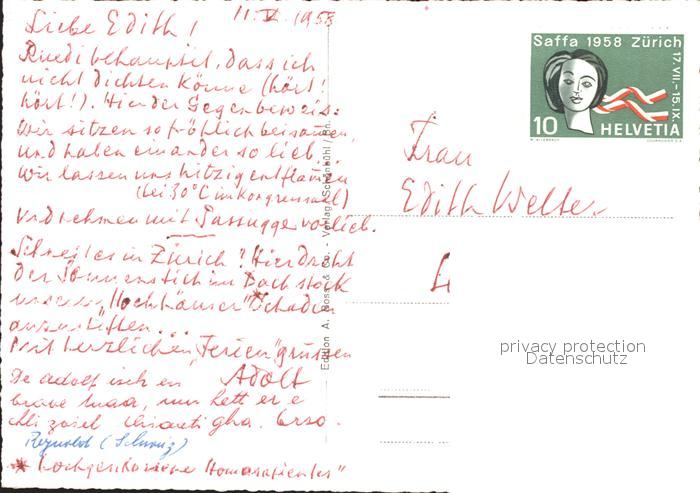 11. V. 1958
Liebe Edith!
Ruedi behauptet, dass ich
nicht dichten könne (hört!
hört!). Hier der Gegenbeweis:
Wir sitzen so fröhlich beisammen,
und haben einander so lieb...
Wir lassen uns hitzig entflammen
(bei 30°C im Kongresssaal)
und nehmen mit Passugger vorlieb.
in Zürich! Hier droht
der Sonnenstich im Dachstock
unserer "Hochhäuser"* Schaden
anzustiften...
Mit herzlichen "Ferien"grüssen
Adolf
De Adolf isch en
brave Maa, nur hett er e
chli
Reynold (Schweiz)
* hochgeschossene "
Saffa 1958 Zürich
17.VII.-15.IX.
10 HELVETIA
Frau
Edith Welte
Edition A. Boss & Co. - Verlag / Schönbühl / Bn.
privacy protection
Datenschutz